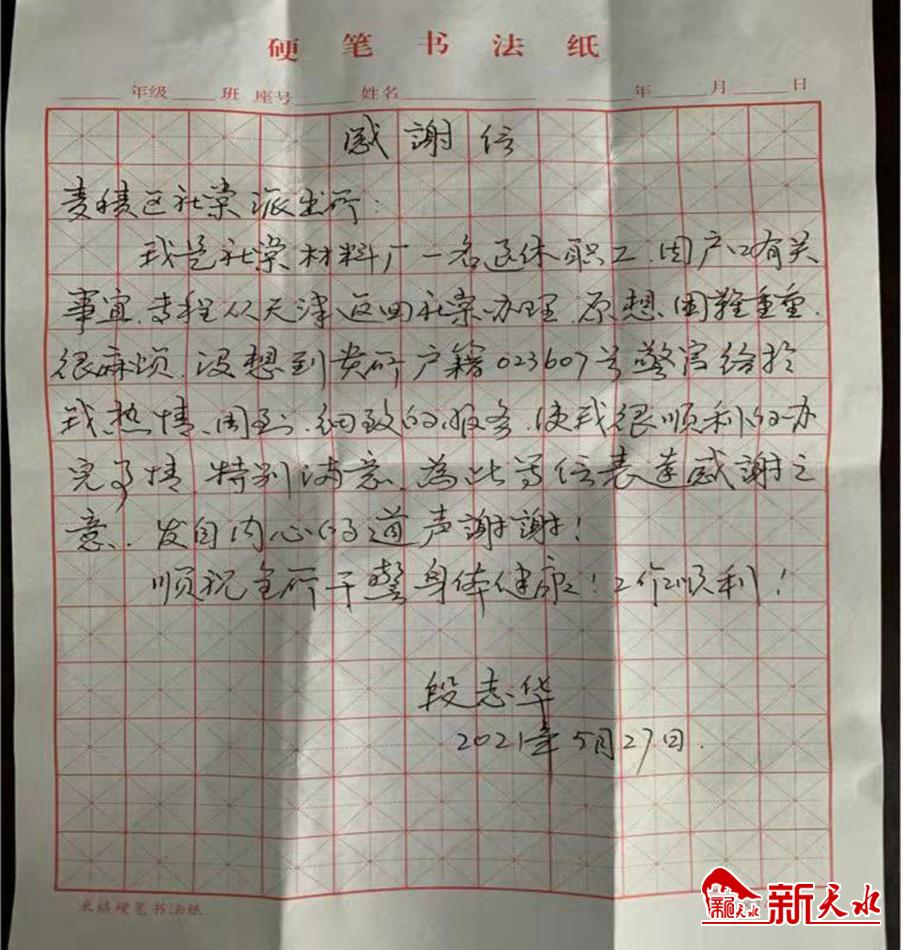 硬笔书法纸
年级 班 座号 姓名 年 月 日
感謝信
麦積区社棠派出所：
我是社棠材料厂一名退休职工.因户口有关
事宜.专程从天津返回社棠办理.原想困难重重.
很麻烦.没想到贵所户籍023607号警官给於
我热情、周到.细致的服务.使我很顺利的办
完事情.特别满意.為此写信表達感謝之
意.发自内心的道声謝謝！
顺祝全所干警身体健康！工作顺利！
段志华
2021年5月27日.
米格硬笔书法纸
新天水
新天水